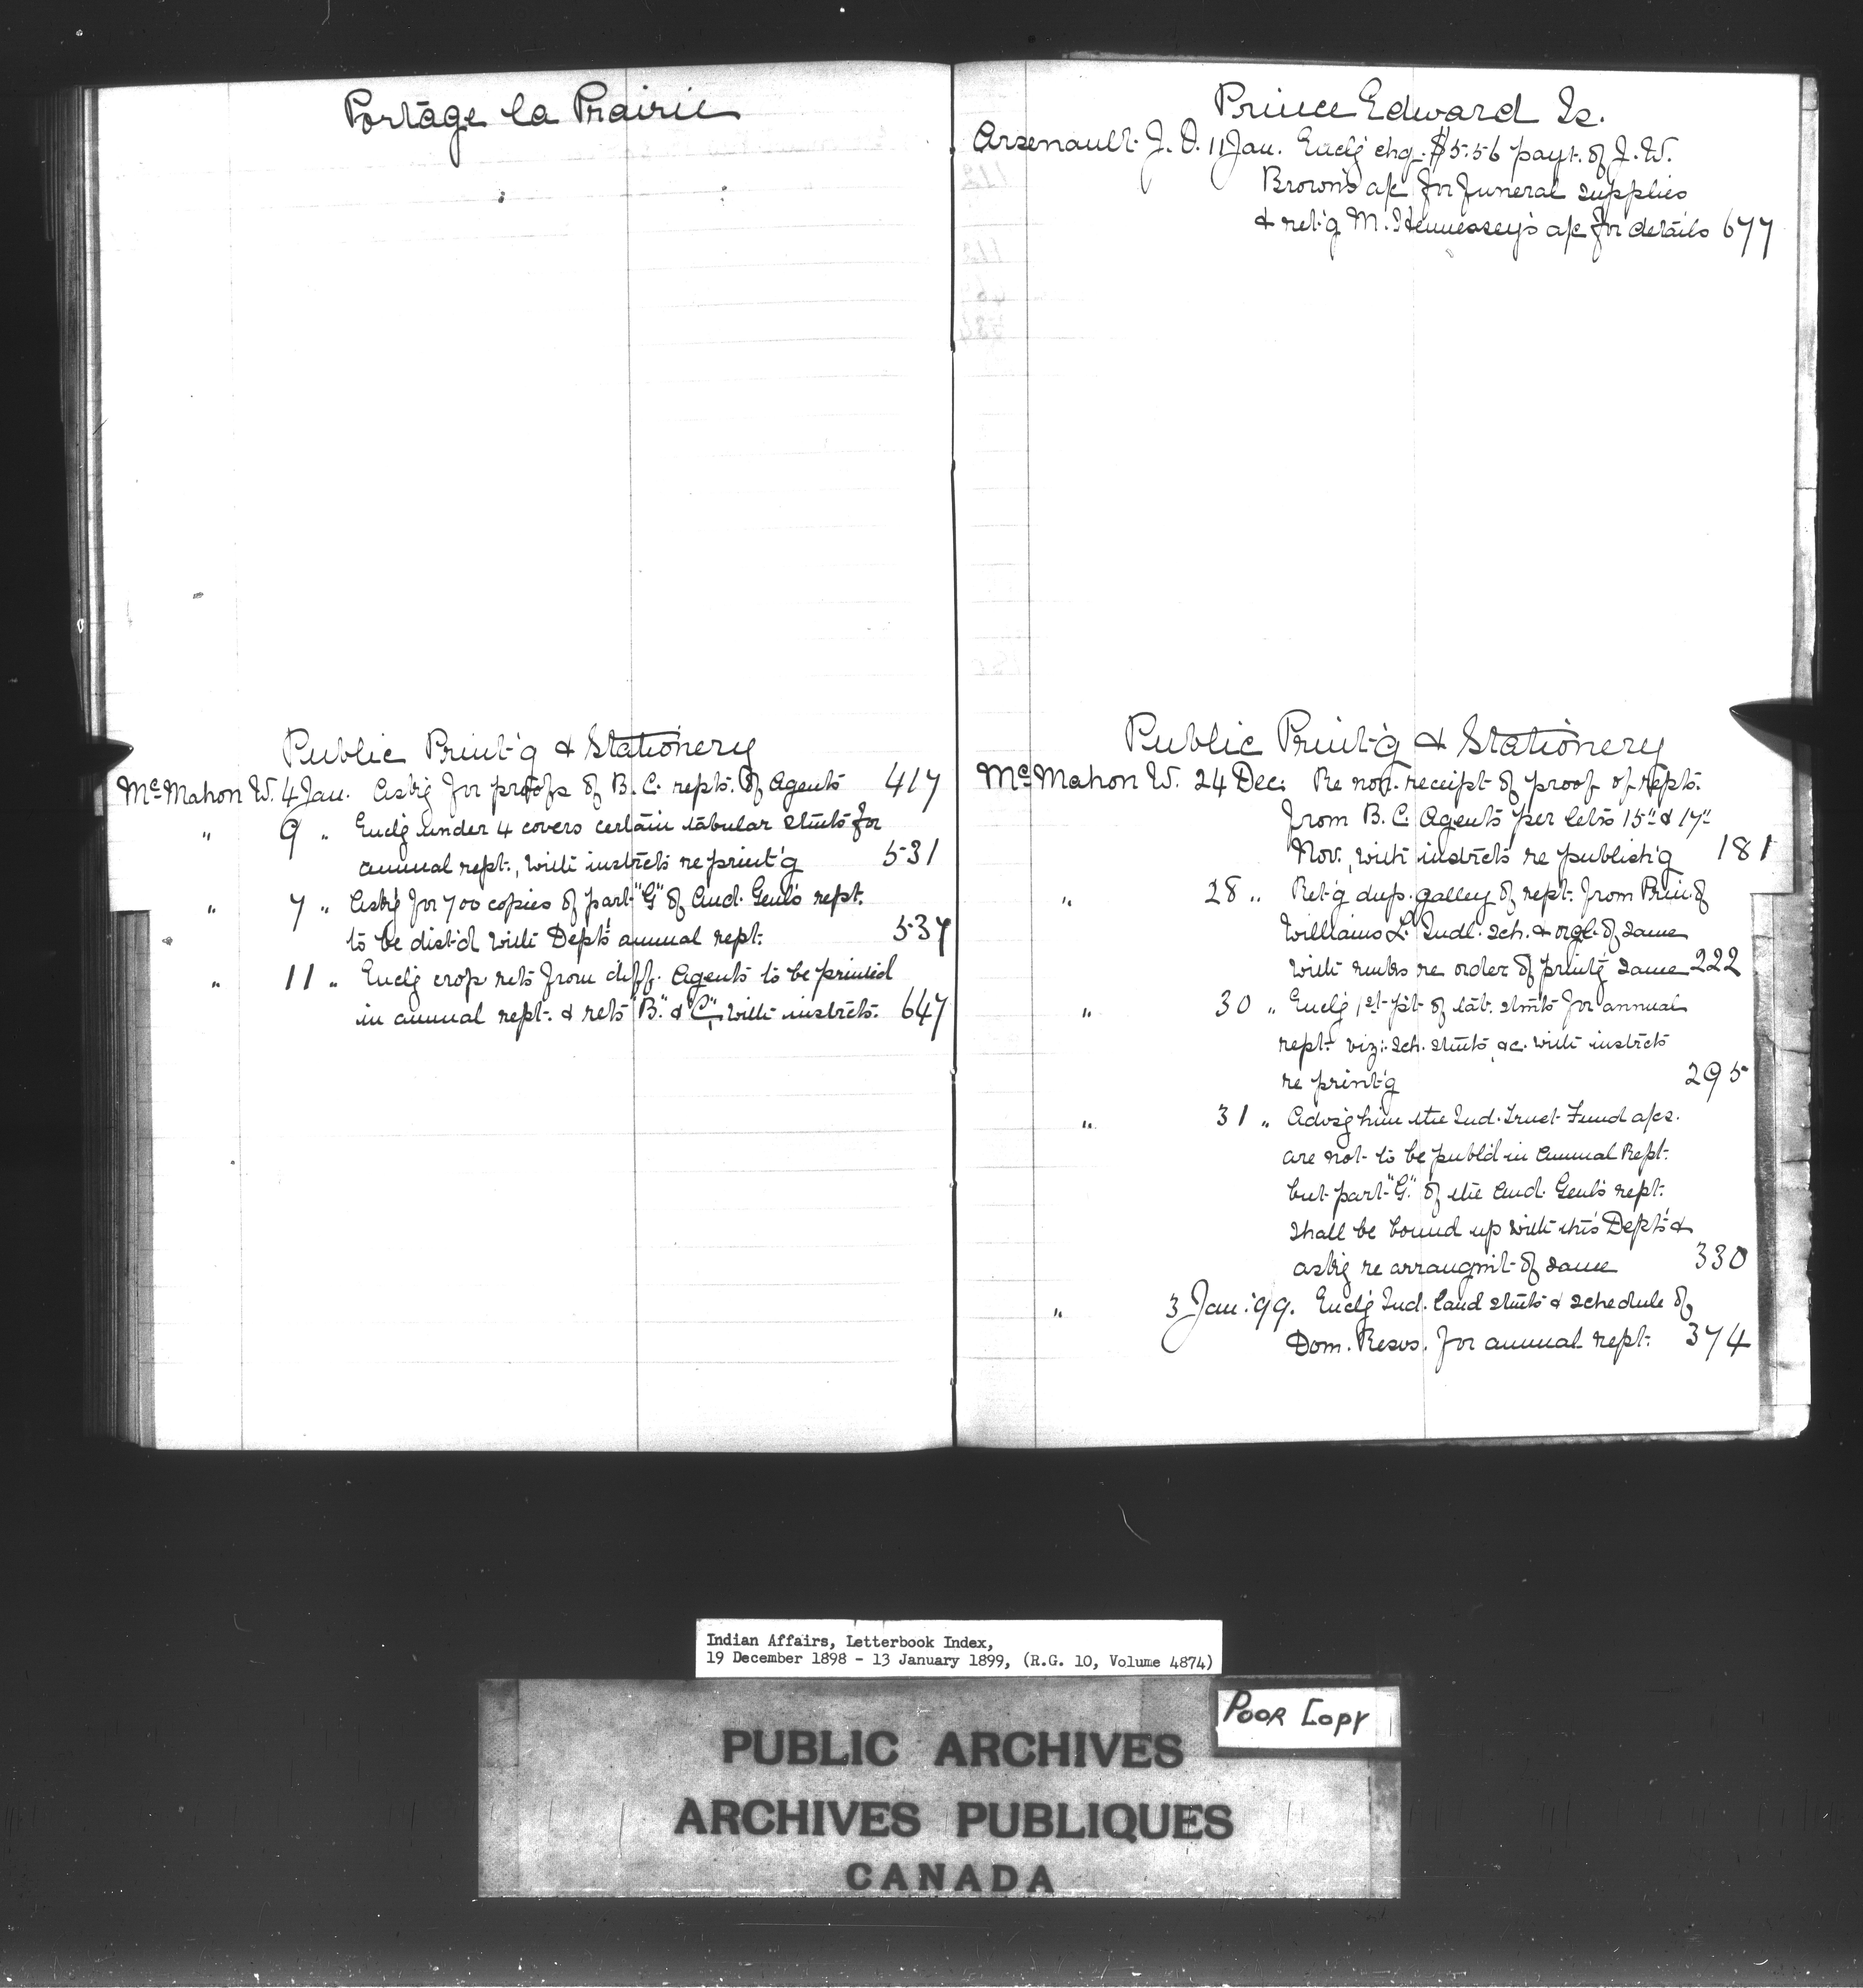 Portage la Prairie
Public Print'g & Stationery
McMahon W. 4 Jan. Ask'g for proofs of B.C. repts. of Agents 417
" 9 " Encl'g under 4 covers certain tabular stmts for
annual rept., with instrcts re print'g 531
" 7 " Ask'g for 700 copies of part "G" of Aud. Genl's rept.
to be dist'd with Dept's annual rept. 537
" 11 " Encl'g crop rets from diff. Agents to be printed
in annual rept. & rets "B." & "C", with instrcts. 647
Prince Edward Is.
Arsenault J. O. 11 Jan. Encl'g chq. $5.56 payt. of J. W.
Brown's a/c for funeral supplies
& ret'g M. Hennessey's a/c for details 677
Public Print'g & Stationery
McMahon W. 24 Dec. Re non-receipt of proof of repts.
from B.C. Agents per let's 15" & 17"
Nov., with instrcts re publish'g 181
" 28 " Ret'g dup. galley of rept. from Prin. of
Williams L. Indl. Sch. & orgl. of same
with rmks re order of print'g same 222
" 30 " Encl'g 1st pt. of tab. stmts for annual
rept. viz:- Sch. stmts &c. with instrcts
re print'g 295
" 31 " Advs'g him the Ind. Trust Fund a/cs.
are not to be publ'd in Annual Rept.
but part "G." of the Aud. Genl's rept.
shall be bound up with this Dept's &
ask'g re arrangmt of same 330
" 3 Jan. '99. Encl'g Ind. land stmts & schedule of
Dom. Resvs. for annual rept. 374
Indian Affairs, Letterbook Index,
19 December 1898 - 13 January 1899, (R.G. 10, Volume 4874)
Poor Copy
PUBLIC ARCHIVES
ARCHIVES PUBLIQUES
CANADA